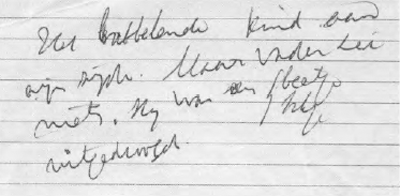 Het babbelende kind aan
zijn zijde. Maar Vader zei
niets. Hij was een beetje
uitgedroogd.